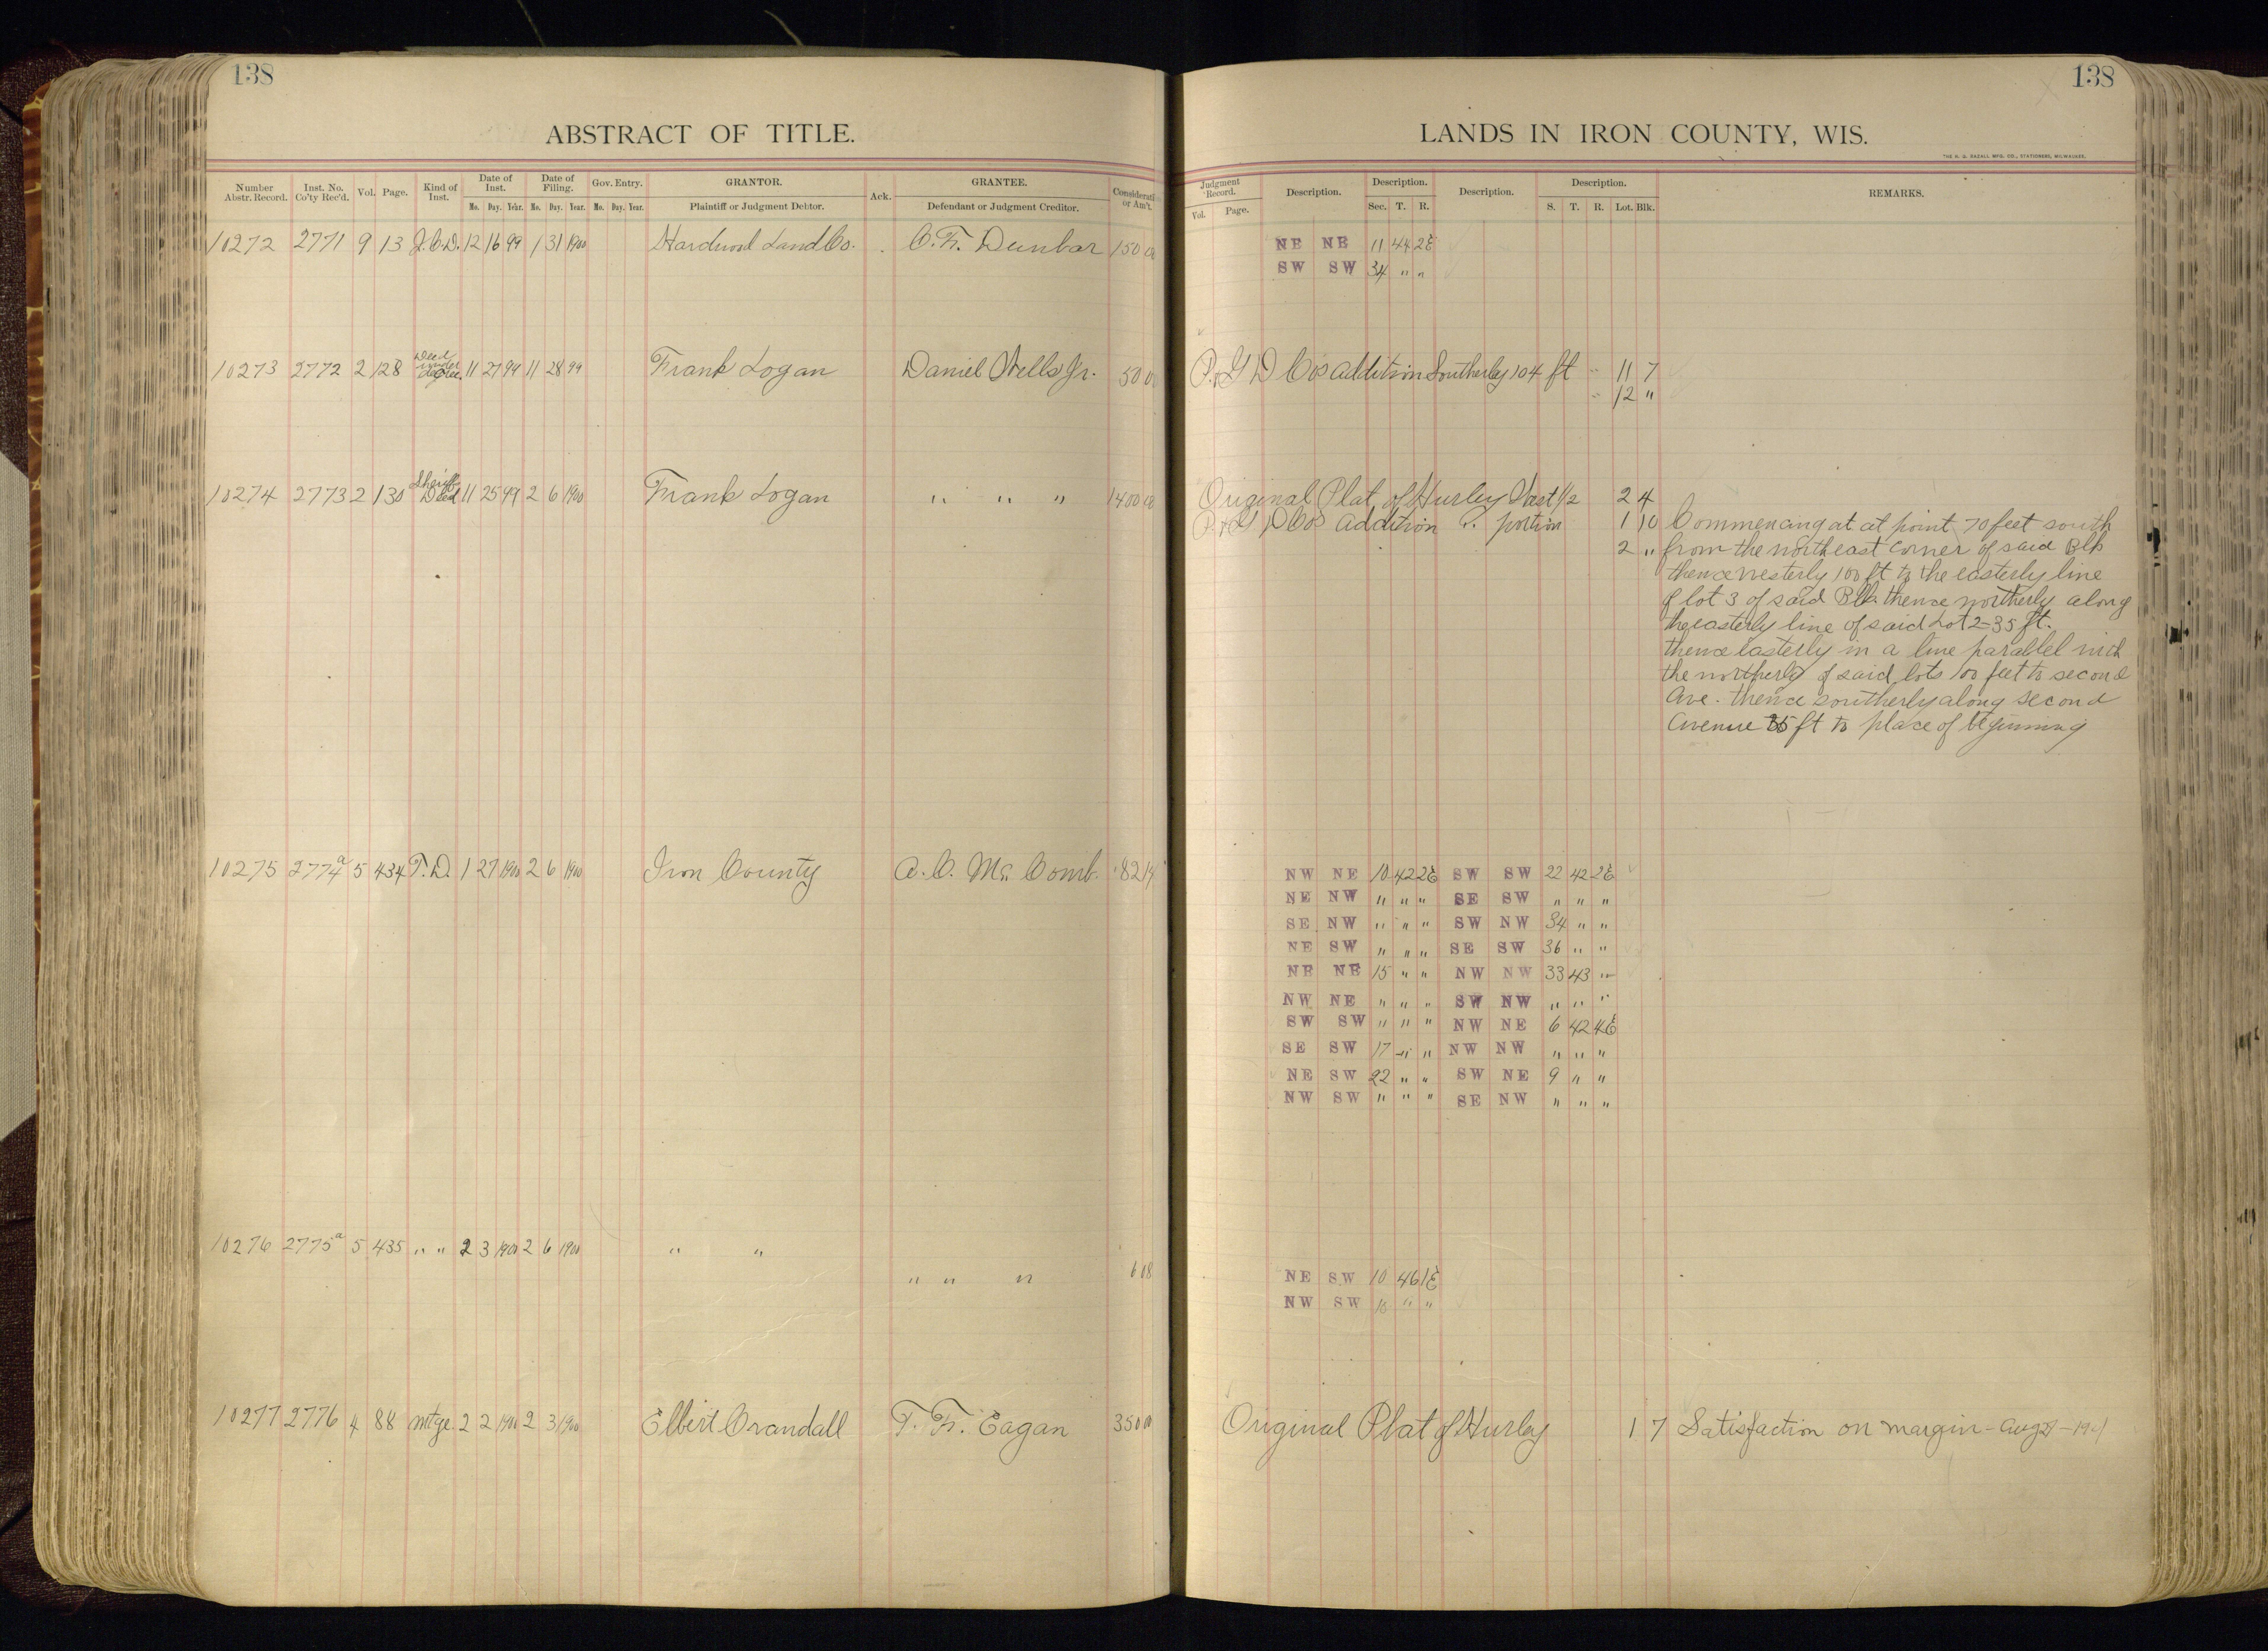 138
ABSTRACT OF TITLE.
Number Abstr. Record. Inst. No. Co'ty Rec'd. Vol. Page. Kind of Inst. Date of Inst. Date of Filing. Gov. Entry. GRANTOR. Ack. GRANTEE. Consideration or Am't.
Mo. Day. Year. Mo. Day. Year. Mo. Day. Year. Plaintiff or Judgment Debtor. Defendant or Judgment Creditor.
10272 2771 9 13 12 16 99 1 31 1900 Hardwood Land Co. C. F. Dunbar 150 00
10273 2772 2 128 Deed under decree 11 27 99 11 28 99 Frank Logan Daniel Wells Jr. 50 00
10274 2773 2 130 Sheriff Deed 11 25 99 2 6 1900 Frank Logan " " " 1400 00
10275 2774a 5 434 T. D. 1 27 1900 2 6 1900 Iron County A. C. Mc Comb. 82 14
10276 2775a 5 435 " " 2 3 1900 2 6 1900 " "
" " " 6 08
10277 2776 4 88 mtge. 2 2 1900 2 3 1900 Elbert Crandall T. F. Eagan 350 00
138
LANDS IN IRON COUNTY, WIS.
THE H. G. RAZALL MFG. CO., STATIONERS, MILWAUKEE.
Judgment Record. Description. Description. Description. Description. REMARKS.
Vol. Page. Sec. T. R. S. T. R. Lot. Blk.
NE NE 11 44 2E
SW SW 34 " "
P. & G D Cos addition Southerly 104 ft 11 7
12 "
Original Plat of Hurley West 1/2 2 4
P. & G D Cos addition portion 1 10 Commencing at at point 70 feet south
2 " from the northeast corner of said Blk
thence westerly 100 ft to the easterly line
of lot 3 of said Blk thence northerly along
the easterly line of said Lot 2-35 ft.
thence easterly in a line parallel with
the northerly of said lots 100 feet to second
Ave. thence southerly along second
Avenue 35 ft to place of beginning
NW NE 10 42 2E SW SW 22 42 2E
NE NW " " " SE SW " " "
SE NW " " " SW NW 34 " "
NE SW " " " SE SW 36 " "
NE NE 15 " " NW NW 33 43 "
NW NE " " " SW NW " " "
SW SW " " " NW NE 6 42 4E
SE SW 17 " " NW NW " " "
NE SW 22 " " SW NE 9 " "
NW SW " " " SE NW " " "
NE SW 10 46 1E
NW SW 10 " "
Original Plat of Hurley 1 7 Satisfaction on margin - Aug - 1901